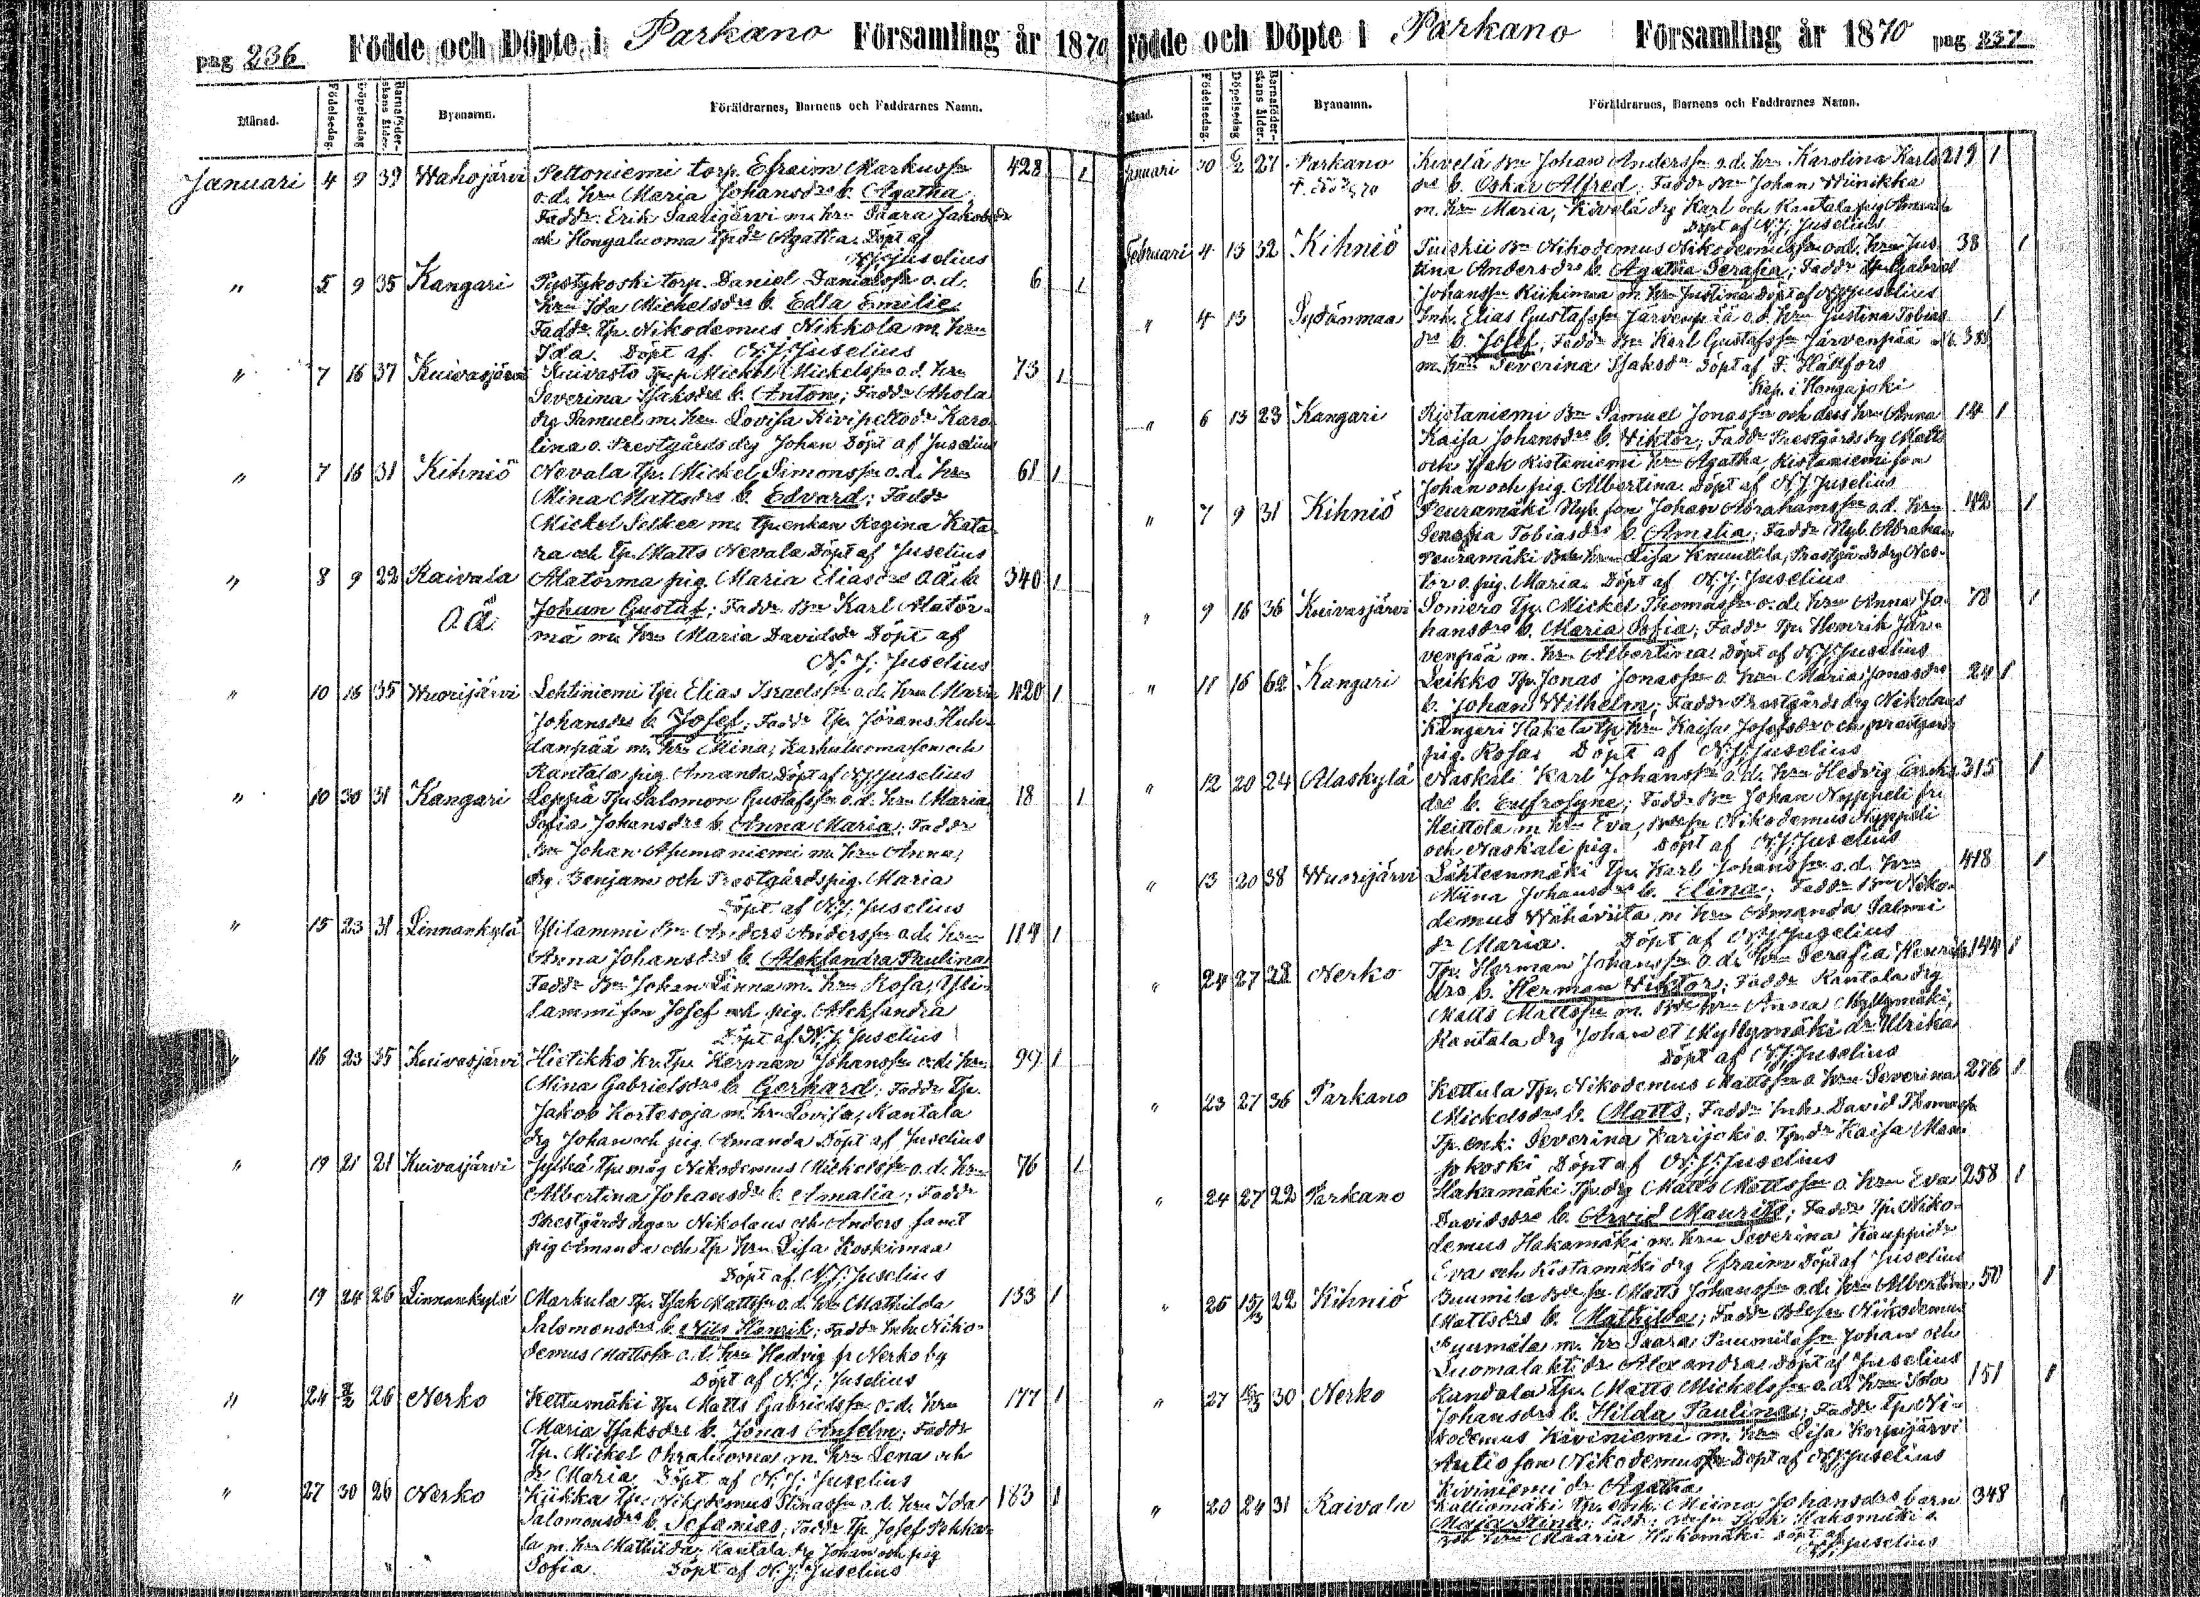 pag 236 Födde och Döpte i Parkano Församling år 1870
Månad. Födelsedag. Döpelsedag Barnaföderskans ålder. Byanamn. Föräldrarnes, Barnens och Faddrarnes Namn.
Januari 4 9 39 Wahojärvi Peltoniemi torp. Efraim Markussn 428 1
o.d. hru Maria Johansdrs b. Agatha,
Faddr. Erik Saarijärvi m. hru Saara Jakobsdr
och Hongaluoma Tpdr Agatha. Döpt af
N.J. Juselius
" 5 9 35 Kangari Pystykoski torp. Daniel Danielssn o.d. 6 1
hru Ida Michelsdrs b. Edla Emilie,
Faddr. Tp. Nikodemus Nikkola m. hru
Ida. Döpt af N.J. Juselius
" 7 16 37 Kuivasjärvi Kuivasto Tp. Mickel Mickelssn o.d. hru 73 1
Severina Isaksdrs b. Anton; Faddr Ahola
drg Samuel m. hru Lovisa Kivipeltodr Karo-
lina o. Prestgårds drg Johan Döpt af Juselius
" 7 16 31 Kihniö Nevala Tp. Mickel Simonssn o.d. hru 61 1
Mina Mattsdrs b. Edvard; Faddr
Mickel Selkee m. Tp. enkan Regina Kata-
ra och Tp. Matts Nevala Döpt af Juselius
" 8 9 22 Kaivala Alatörmä pig. Maria Eliasdrs o.ä. b. 340 1
o.ä. Johan Gustaf; Faddr Bn Karl Alatör-
mä m. hru Maria Davidsdr Döpt af
N. J. Juselius
" 10 16 35 Wuorijärvi Lehtiniemi Tp. Elias Israelssn o.d. hru Maria 420 1
Johansdrs b. Josef; Faddr Tp. Jörans Huh-
danpää m. hru Mina, Karhuluoma son och
Rantala pig. Amanda Döpt af N.J. Juselius
" 10 30 31 Kangari Leppä Tp. Salomon Gustafssn o.d. hru Maria 18 1
Sofia Johansdrs b. Anna Maria; Faddr
Bn Johan Asumaniemi m. hru Anna,
drg. Benjam och Prestgårdspig. Maria
Döpt af N.J. Juselius
" 15 23 31 Linnankylä Ylilammi Bn Anders Anderssn o.d. hru 119 1
Anna Johansdrs b. Aleksandra Paulina
Faddr Bn Johan Linna m. hru Rosa, Yli-
lammi son Josef och pig. Aleksandra
Döpt af N.J. Juselius
" 16 23 35 Kuivasjärvi Hietikko kr. Tp. Herman Johanssn o.d. hru 99 1
Mina Gabrielsdrs b. Gerhard; Faddr Tp.
Jakob Kortesoja m. hru Lovisa, Kantala
drg Johan och pig. Amanda Döpt af Juselius
" 19 21 21 Kuivasjärvi Jylhä Tp. måg Nikodemus Michelssn o.d. hru 76 1
Albertina Johansdrs b. Amalia; Faddr
Prestgårds drgar Nikolaus och Anders samt
pig Amanda och Tp. hru Lisa Koskimaa
Döpt af N.J. Juselius
" 19 24 26 Linnankylä Markula Tp. Isak Mattssn o.d. hru Mathilda 133 1
Salomonsdrs b. Nils Henrik; Faddr Inh. Niko-
demus Mattssn o.d. hru Hedvig fr Nerko by
Döpt af N.J. Juselius
" 24 2/2 26 Nerko Kettumäki Tp. Matts Gabrielssn o.d. hru 177 1
Maria Isaksdrs b. Jonas Anselm; Faddr
Tp. Mickel Ohraluoma m. hru Lena och
dr Maria Döpt af N.J. Juselius
" 27 30 26 Nerko Kiikka Tp. Nikodemus Stinassn o.d. hru Ida 183 1
Salomonsdrs b. Sefanias; Faddr Tp. Josef Pohka-
la m. hru Mathilda, Kantala drg Johan och pig
Sofia. Döpt af N.J. Juselius
Födde och Döpte i Parkano Församling år 1870 pag 237
Månad. Födelsedag. Döpelsedag Barnaföderskans ålder. Byanamn. Föräldrarnes, Barnens och Faddrarnes Namn.
Januari 30 6/2 27 Parkano Kivelä Bn Johan Anderssn o.d. hru Karolina Karls 219 1
drs b. Oskar Alfred; Faddr Bn Johan Wiinikka
m. hru Maria, Kivelä drg Karl och Kantala pig Amanda
Döpt af N.J. Juselius
Februari 4 13 32 Kihniö Bn Nikodemus Nikodemussn o.d. hru Jus- 38 1
tina Andersdrs b. Agatha Serafia; Faddr Tp. Gabriel
Johanssn Riihimaa m. hru Justina Döpt af N.J. Juselius
" 4 13 Sydänmaa Inh. Elias Gustafssn Järvenpää o.d. hru Justina Tobias 1
drs b. Josef, Faddr Bn Karl Gustafssn Järvenpää 388
m. hru Severina Isaksdr Döpt af F. Hällfors
Kap. i Hongajoki
" 6 13 23 Kangari Ristaniemi Bn Samuel Jonassn och dess hru Anna 14 1
Kaisa Johansdrs b. Viktor; Faddr Prestgårds drg Matts
och Isak Ristaniemi hru Agatha, Ristaniemi son
Johan och pig. Albertina. Döpt af N.J. Juselius
" 7 9 31 Kihniö Peuramäki Nyb. son Johan Abrahamssn o.d. hru 42 1
Serafia Tobiasdrs b. Amalia; Faddr Nyb. Abraham
Peuramäki Bde hru Lisa Knuuttila, Prestgårds drg Nes-
tor o. pig. Maria. Döpt af N.J. Juselius
" 9 16 36 Kuivasjärvi Somero Tp. Mickel Thomassn o.d. hru Anna Jo- 78 1
hansdrs b. Maria Sofia; Faddr Tp. Henrik Jär-
venpää m. hru Albertina Döpt af N.J. Juselius
" 11 16 62 Kangari Leikko Tp. Jonas Jonassn o. hru Maria Jonasdrs 24 1
b. Johan Wilhelm; Faddr Prestgårds drg Nikolaus
Kangari Hakela Tp. hru Kaisa Josefsdr och prestgårds
pig. Rosa. Döpt af N.J. Juselius
" 12 20 24 Alaskylä Naskali Karl Johanssn o.d. hru Hedvig 315 1
drs b. Eufrosyne; Faddr Bn Johan Nyppeli fr
Heittola m. hru Eva, Nikodemus Nyppeli
och Naskali pig. Döpt af N.J. Juselius
" 13 20 38 Wuorijärvi Lähteenmäki Tp. Karl Johanssn o.d. hru 418 1
Miina Johansdrs b. Elina; Faddr Bn Niko-
demus Wähäviita m. hru Amanda Salmi
dr Maria. Döpt af N.J. Juselius
" 24 27 28 Nerko Tp. Herman Johanssn o.d. hru Serafia Henriks 144 1
drs b. Herman Viktor; Faddr Kantala drg
Matts Mattssn m. Bde hru Anna Myllymäki,
Kantala drg Johan et Myllymäki dr Ulrika
Döpt af N.J. Juselius
" 23 27 36 Parkano Kettula Tp. Nikodemus Mattssn o. hru Severina 276 1
Mickelsdrs b. Matts; Faddr Inh. David Thomassn
Tp. enk. Severina Karijoki o. Tp. dr Kaisa
Döpt af N.J. Juselius
" 24 27 22 Parkano Hakamäki Tp. drg Matts Mattssn o. hru Eva 258 1
Davidsdrs b. Arvid Maurits; Faddr Tp. Niko-
demus Hakamäki m. hru Severina Kauppi dr
Eva och Ristamäki drg Efraim Döpt af Juselius
" 25 15/3 22 Kihniö Puumila Bde sn Matts Johanssn o.d. hru Albertina 50 1
Mattsdrs b. Mathilda; Faddr Bde sn Nikodemus
Puumila m. hru Saara, Puumila sn Johan och
Luomalahti dr Alexandra Döpt af Juselius
" 27 30 Nerko Tp. Matts Mickelssn o.d. hru Ida 151 1
Johansdrs b. Hilda Paulina; Faddr Tp. Ni-
kodemus Kiviniemi m. hru Lisa Korpijärvi
Antio son Nikodemus Döpt af N.J. Juselius
Kiviniemi dr Agatha
" 20 24 31 Kaivala Kalliomäki Tp. enk. Miina Johansdrs barn 348 1
Maja Stina; Faddr Isak Hakomäki o.
hru Maaria Hakomäki Döpt af
N.J. Juselius